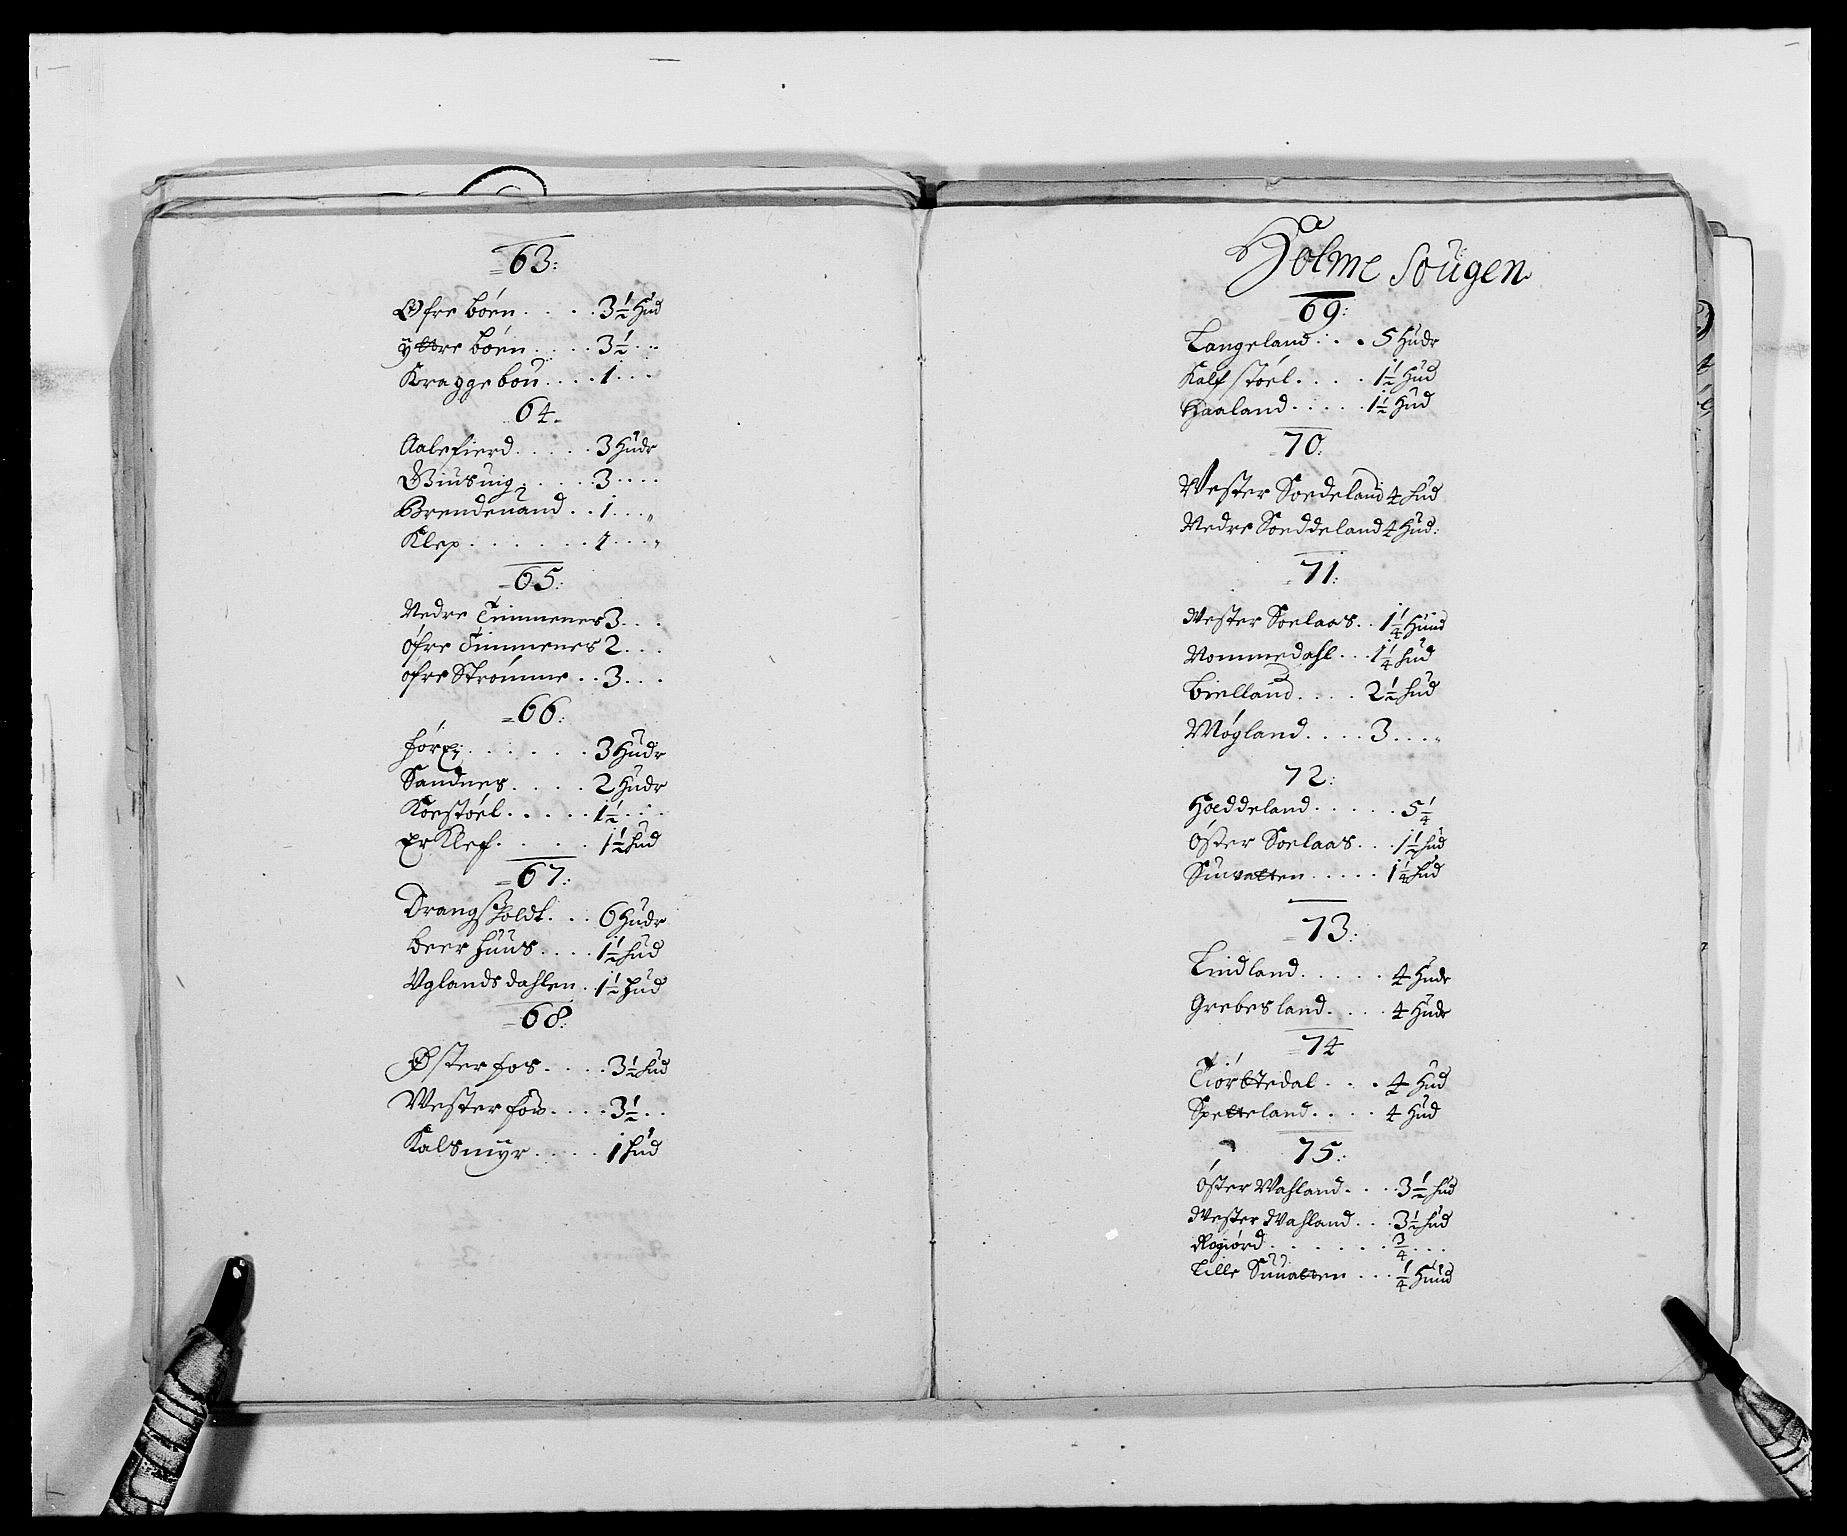 63:
Øfre böen . . . . 3½ Hud
ÿttre böen . . . . 3½ . .
Kraggebou . . . . 1 . . .
64
Aalefierd . . . . . 3 Hudr
Biusuig . . . . . 3 . . . .
Brendeuand . . 1 . . . „
Klep . . . . . . . 1 . . . „
65:
Nedre Timmenes 3 . . .
öfre Timmenes 2 . . .
öfre Strömme . . 3 . . .
66:
. . . . . . 3 Hudr
Sandnes . . . . . 2 Hudr
Koestöel . . . . . 1½ . . .
ErKlef . . . . . 1½ hud
67:
Drangsholdt . . . 6 Hudr
beer huus . . . . 1½ hud
Uglands dahlen . 1½ hud
68:
Øster fos . . . . 3½ hud
Wester fos . . . . 3½ . .
Kalsmÿr . . . . . 1 hud
Holme Sougen
69:
Langeland . . . 5 Hudr
Kalfstöel . . . . 1½ Hud
Haaland . . . . . 1½ Hud
70:
Wester Soedeland 4 hud
Nedre Soeddeland 4 Hud:
71:
Wester Soelaas . . 1¼ Huud
Nommedahl . . . 1¼ hud
bielland . . . . 2½ hud
Mögland . . . . 3 . . . „
72:
Hoeddeland . . . . . 5¼
öster Soelaas . . . 1½ hud
Siuvatten . . . . . 1¼ hud
73:
Lindland . . . . . 4 Hudr
Grebesland . . . . 4 Hudr
74
Tiörttedal . . . 4 Hud
Spetteland . . . . 4 Hud
75:
öster Wahland . . . . 3½ hud
Wester Wahland . . . 3½ hud
Rogiörd . . . . . . . ¾ . . .
Lille Siuuatten . . . ¼ Huud